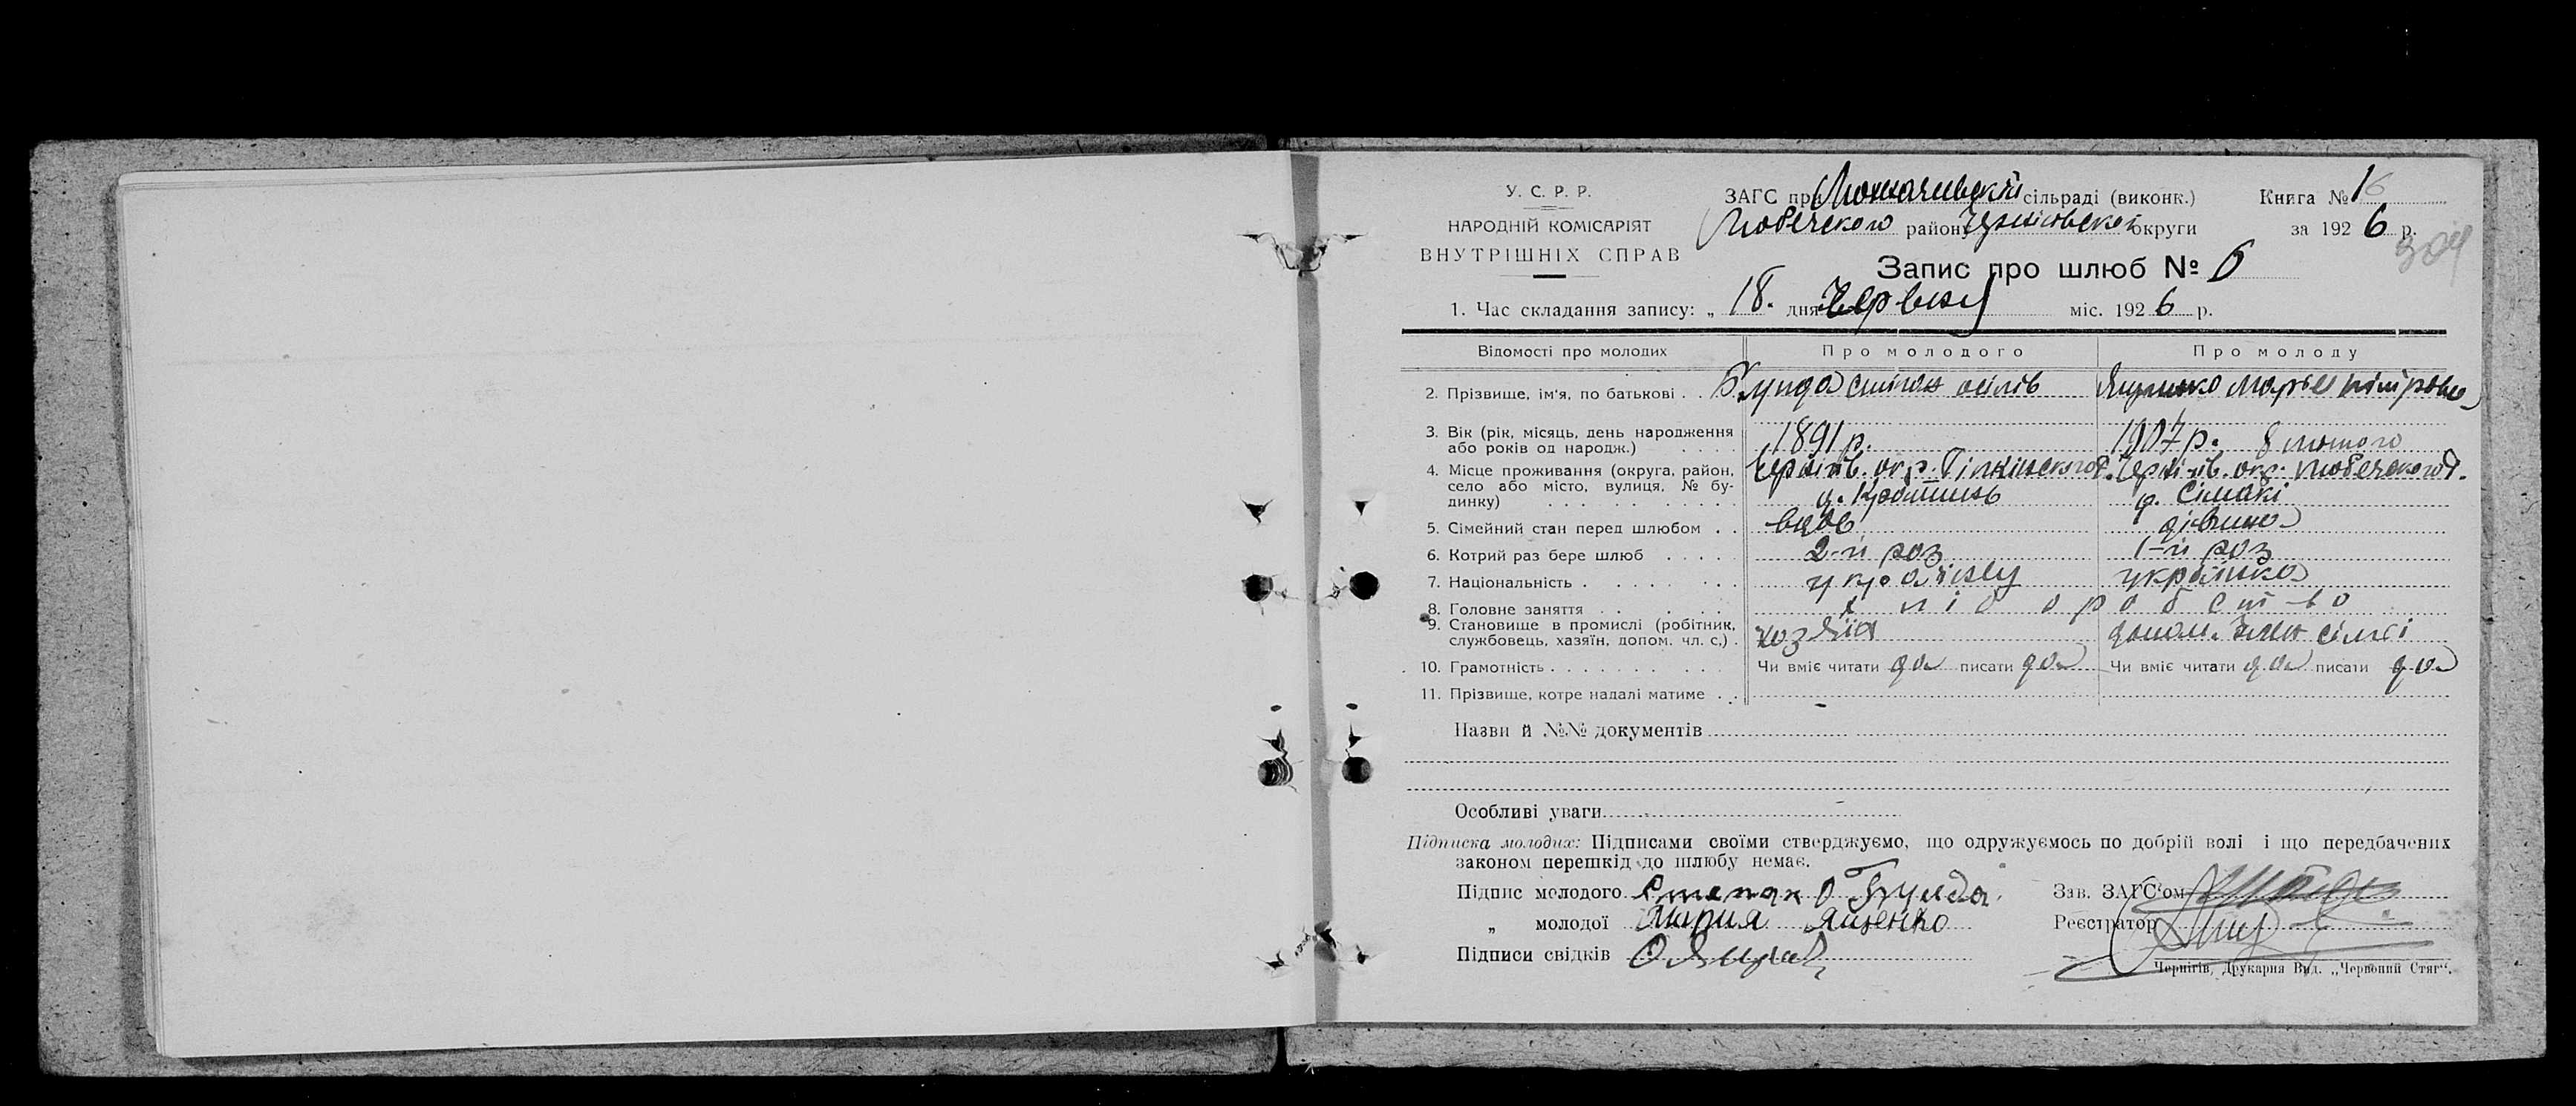 У. С. Р. Р.
НАРОДНІЙ КОМІСАРІЯТ
ВНУТРІШНІХ СПРАВ
ЗАГС при сільраді (виконк.)
Любечского району округи
Книга № 16
за 1926 р.
304
Запис про шлюб № 6
1. Час складання запису: „ 18. дня Червня міс. 1926 р.
Відомості про молодих Про молодого Про молоду
2. Прізвище, ім'я, по батькові . . осілів Марья
3. Вік (рік, місяць, день народження
або років од народж.) . . . . 1891 р. 1907 р. 8 лютого
4. Місце проживання (округа, район, Чернігів. окр. Чернігів. окр. Любечского р.
село або місто, вулиця, № бу-
динку) . . . . . . . . . . д. д. Сімакі
5. Сімейний стан перед шлюбом . . вдов дівчина
6. Котрий раз бере шлюб . . . . 2-й раз 1-й раз
7. Національність . . . . . . . українец українка
8. Головне заняття . . . . . . хліборобство
9. Становище в промислі (робітник,
службовець, хазяїн, допом. чл. с,) . хозяїн допом. член сімьї
10. Грамотність . . . . . . . . . Чи вміє читати да писати да Чи вміє читати да писати да
11. Прізвище, котре надалі матиме . .
Назви й №№ документів
Особливі уваги
Підписка молодих: Підписами своїми стверджуємо, що одружуємось по добрій волі і що передбачених
законом перешкід до шлюбу немає.
Підпис молодого Степан О Бунда. Зав. ЗАГС'ом
„ молодої Мария Ященко Реєстратор
Підписи свідків
Чернігів, Друкарня Вид. „Червоний Стяг“.